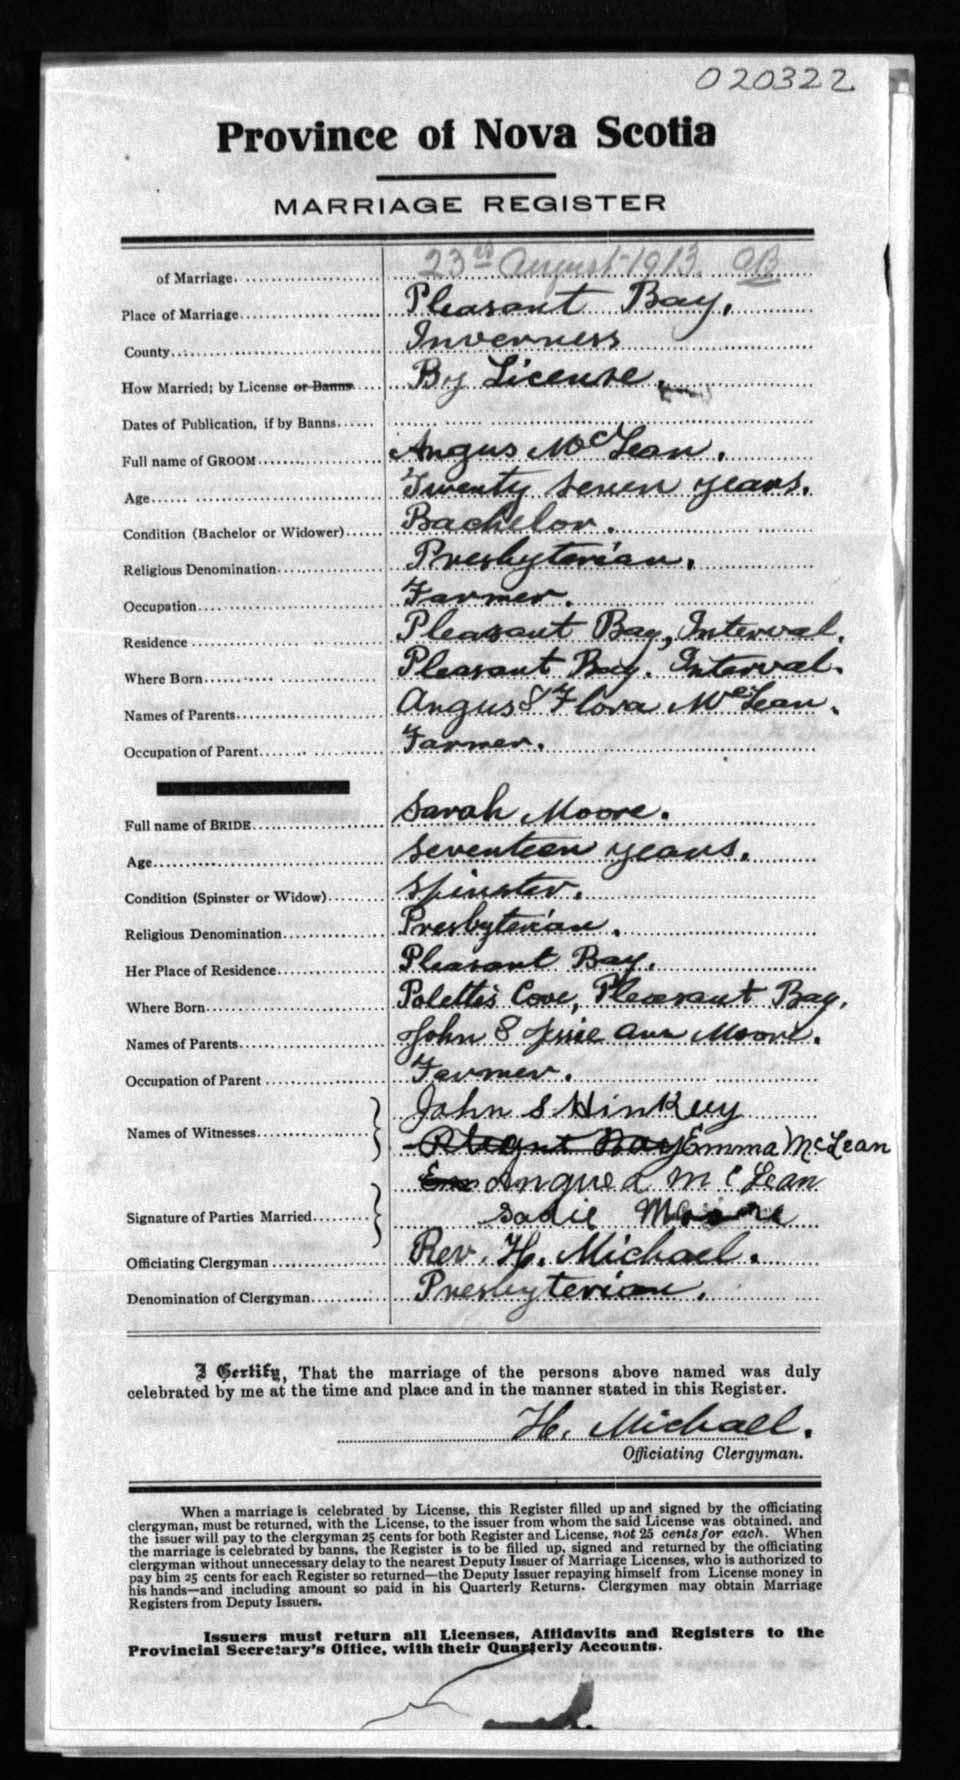 020322
Province of Nova Scotia
MARRIAGE REGISTER
of Marriage 23rd August 1913. AB
Place of Marriage Pleasant Bay.
County Inverness
How Married; by License or Banns By License.
Dates of Publication, if by Banns
Full name of GROOM Angus McLean.
Age Twenty seven years.
Condition (Bachelor or Widower) Bachelor.
Religious Denomination Presbyterian.
Occupation Farmer.
Residence Pleasant Bay, Interval.
Where Born Pleasant Bay. Interval.
Names of Parents Angus & Flora McLean.
Occupation of Parent Farmer.
Full name of BRIDE Sarah Moore.
Age Seventeen years.
Condition (Spinster or Widow) Spinster.
Religious Denomination Presbyterian.
Her Place of Residence Pleasant Bay.
Where Born Polette's Cove, Pleasant Bay.
Names of Parents John & Ann Moore.
Occupation of Parent Farmer.
John S Hinkley
Names of Witnesses Bay Emma McLean
Angus L McLean
Signature of Parties Married Sadie Moore
Officiating Clergyman Rev. H. Michael.
Denomination of Clergyman Presbyterian.
I Certify, That the marriage of the persons above named was duly
celebrated by me at the time and place and in the manner stated in this Register.
H. Michael.
Officiating Clergyman.
When a marriage is celebrated by License, this Register filled up and signed by the officiating
clergyman, must be returned, with the License, to the issuer from whom the said License was obtained, and
the issuer will pay to the clergyman 25 cents for both Register and License, not 25 cents for each. When
the marriage is celebrated by banns, the Register is to be filled up, signed and returned by the officiating
clergyman without unnecessary delay to the nearest Deputy Issuer of Marriage Licenses, who is authorized to
pay him 25 cents for each Register so returned—the Deputy Issuer repaying himself from License money in
his hands—and including amount so paid in his Quarterly Returns. Clergymen may obtain Marriage
Registers from Deputy Issuers.
Issuers must return all Licenses, Affidavits and Registers to the
Provincial Secretary's Office, with their Quarterly Accounts.